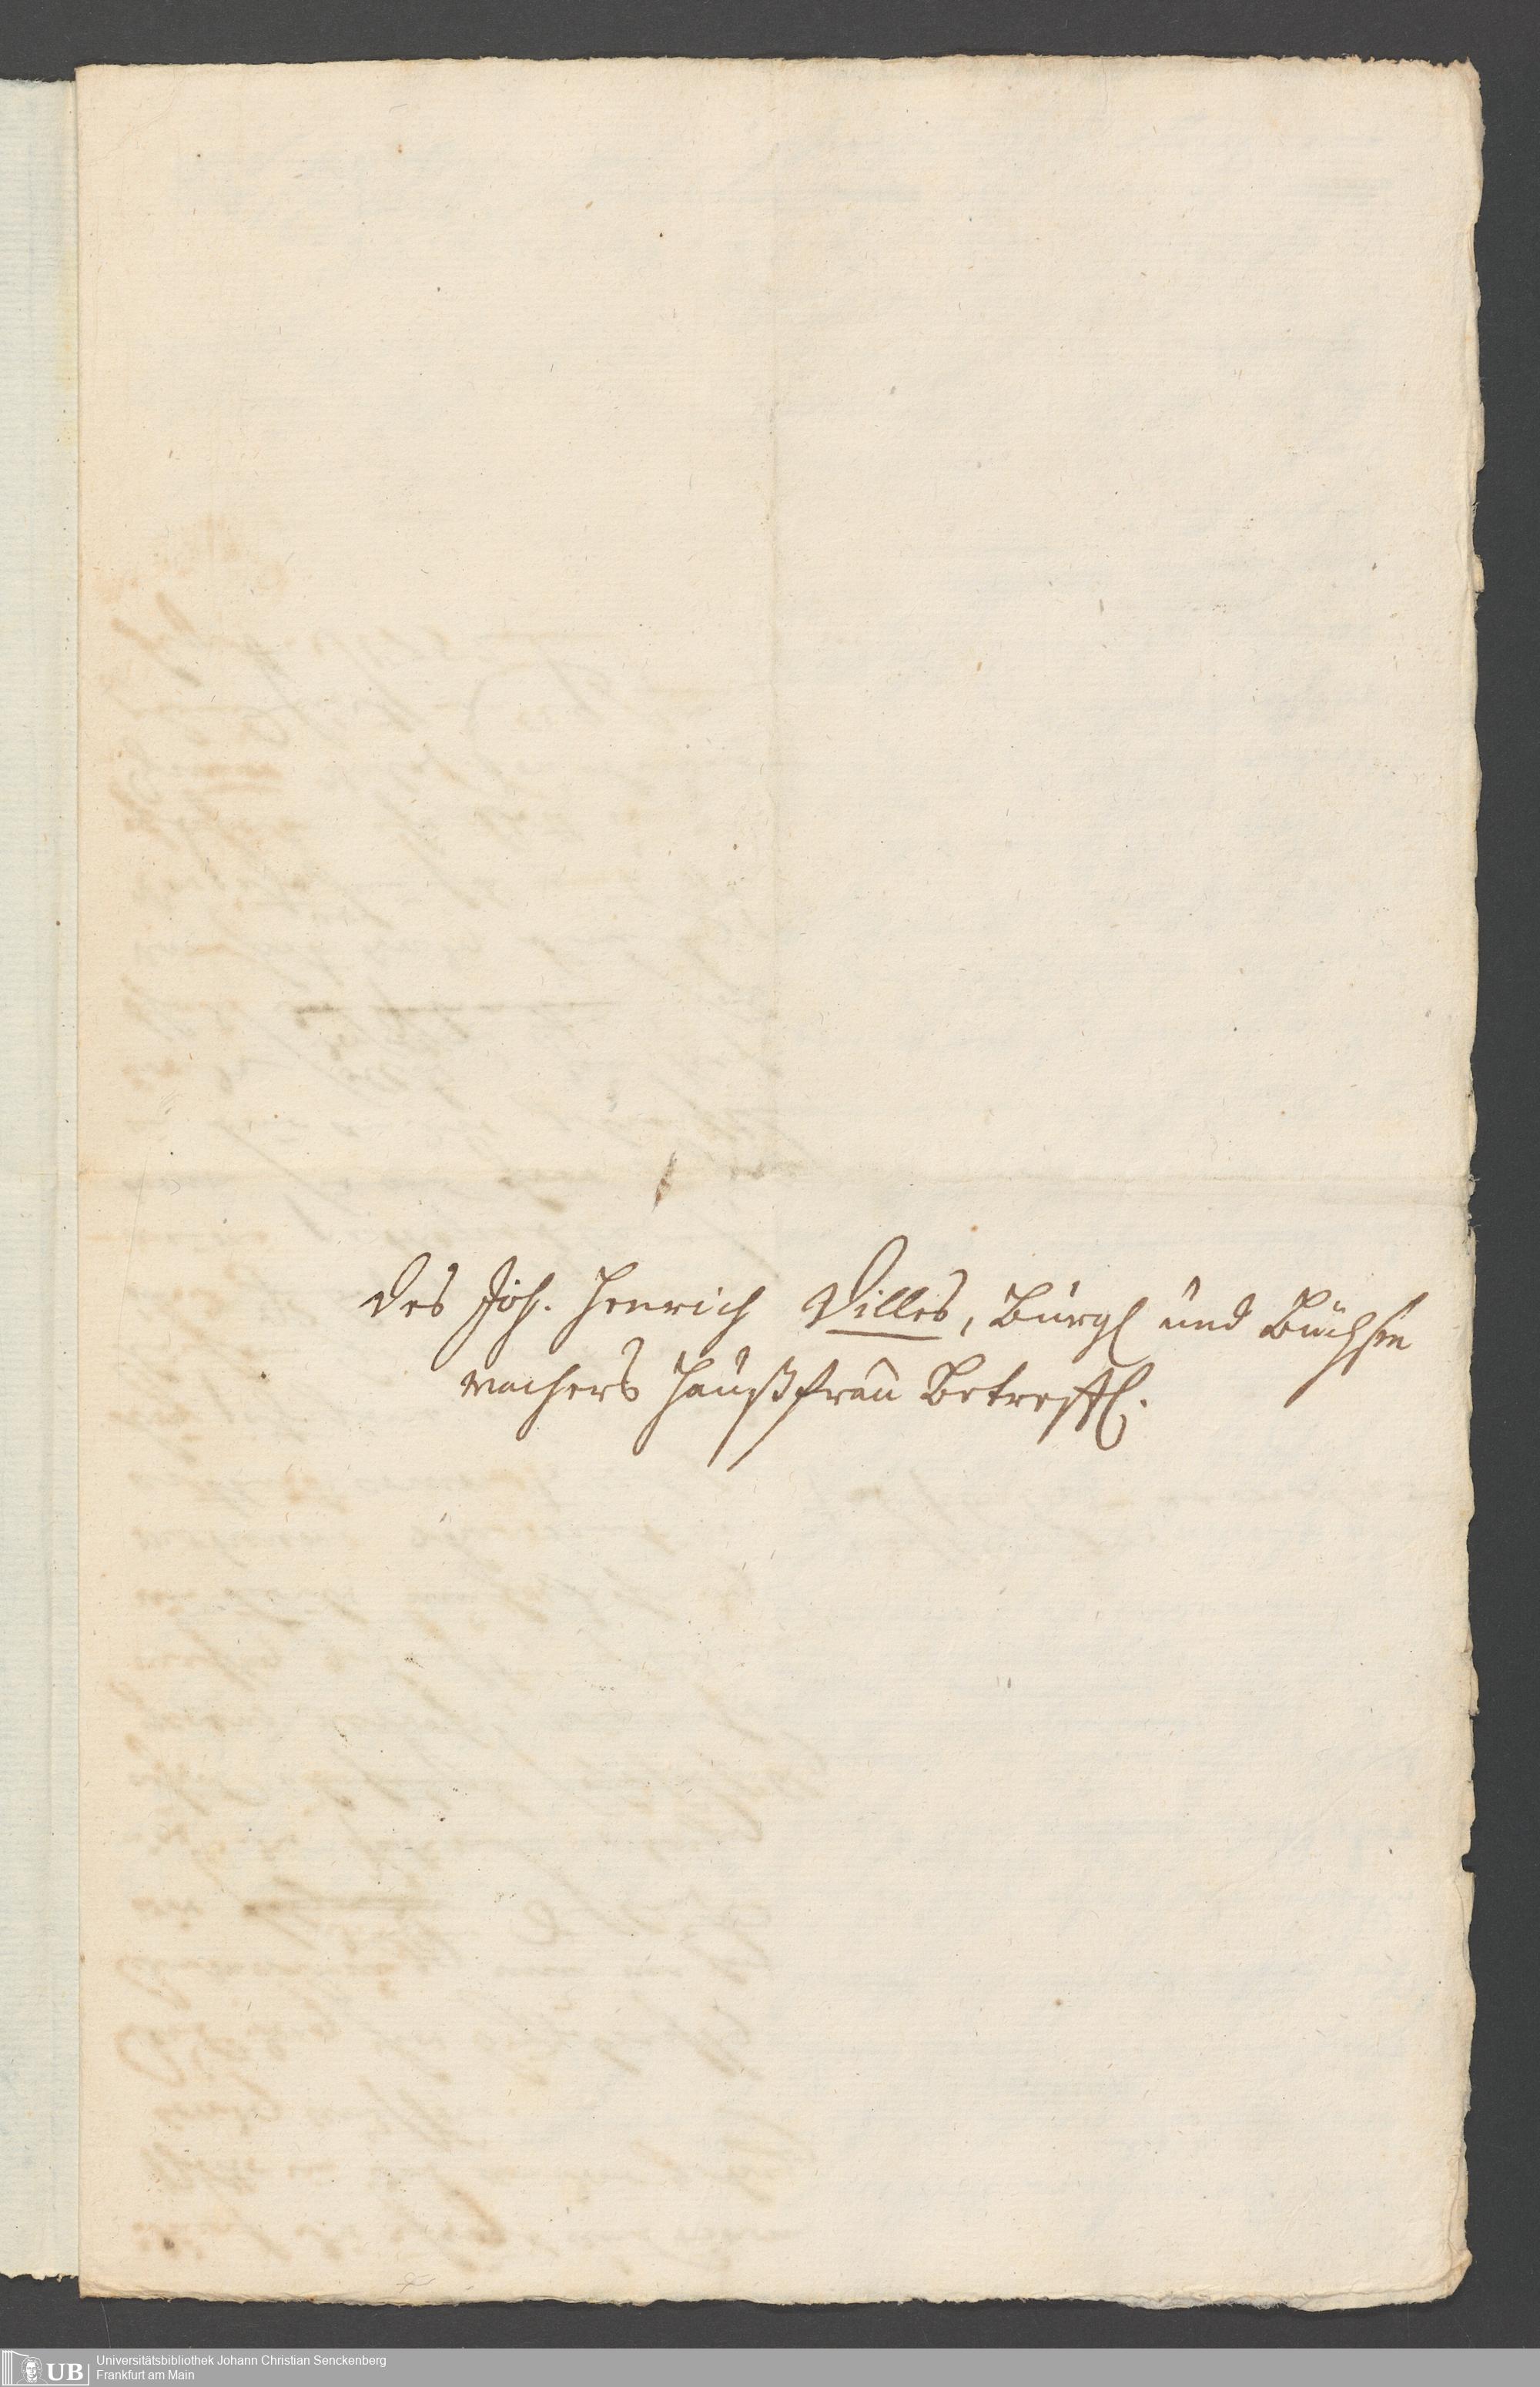 des Joh. Henrich Dilles, Burgl und Büchsen
machers Haußfrau Betreffl.
UB Universitätsbibliothek Johann Christian Senckenberg
Frankfurt am Main